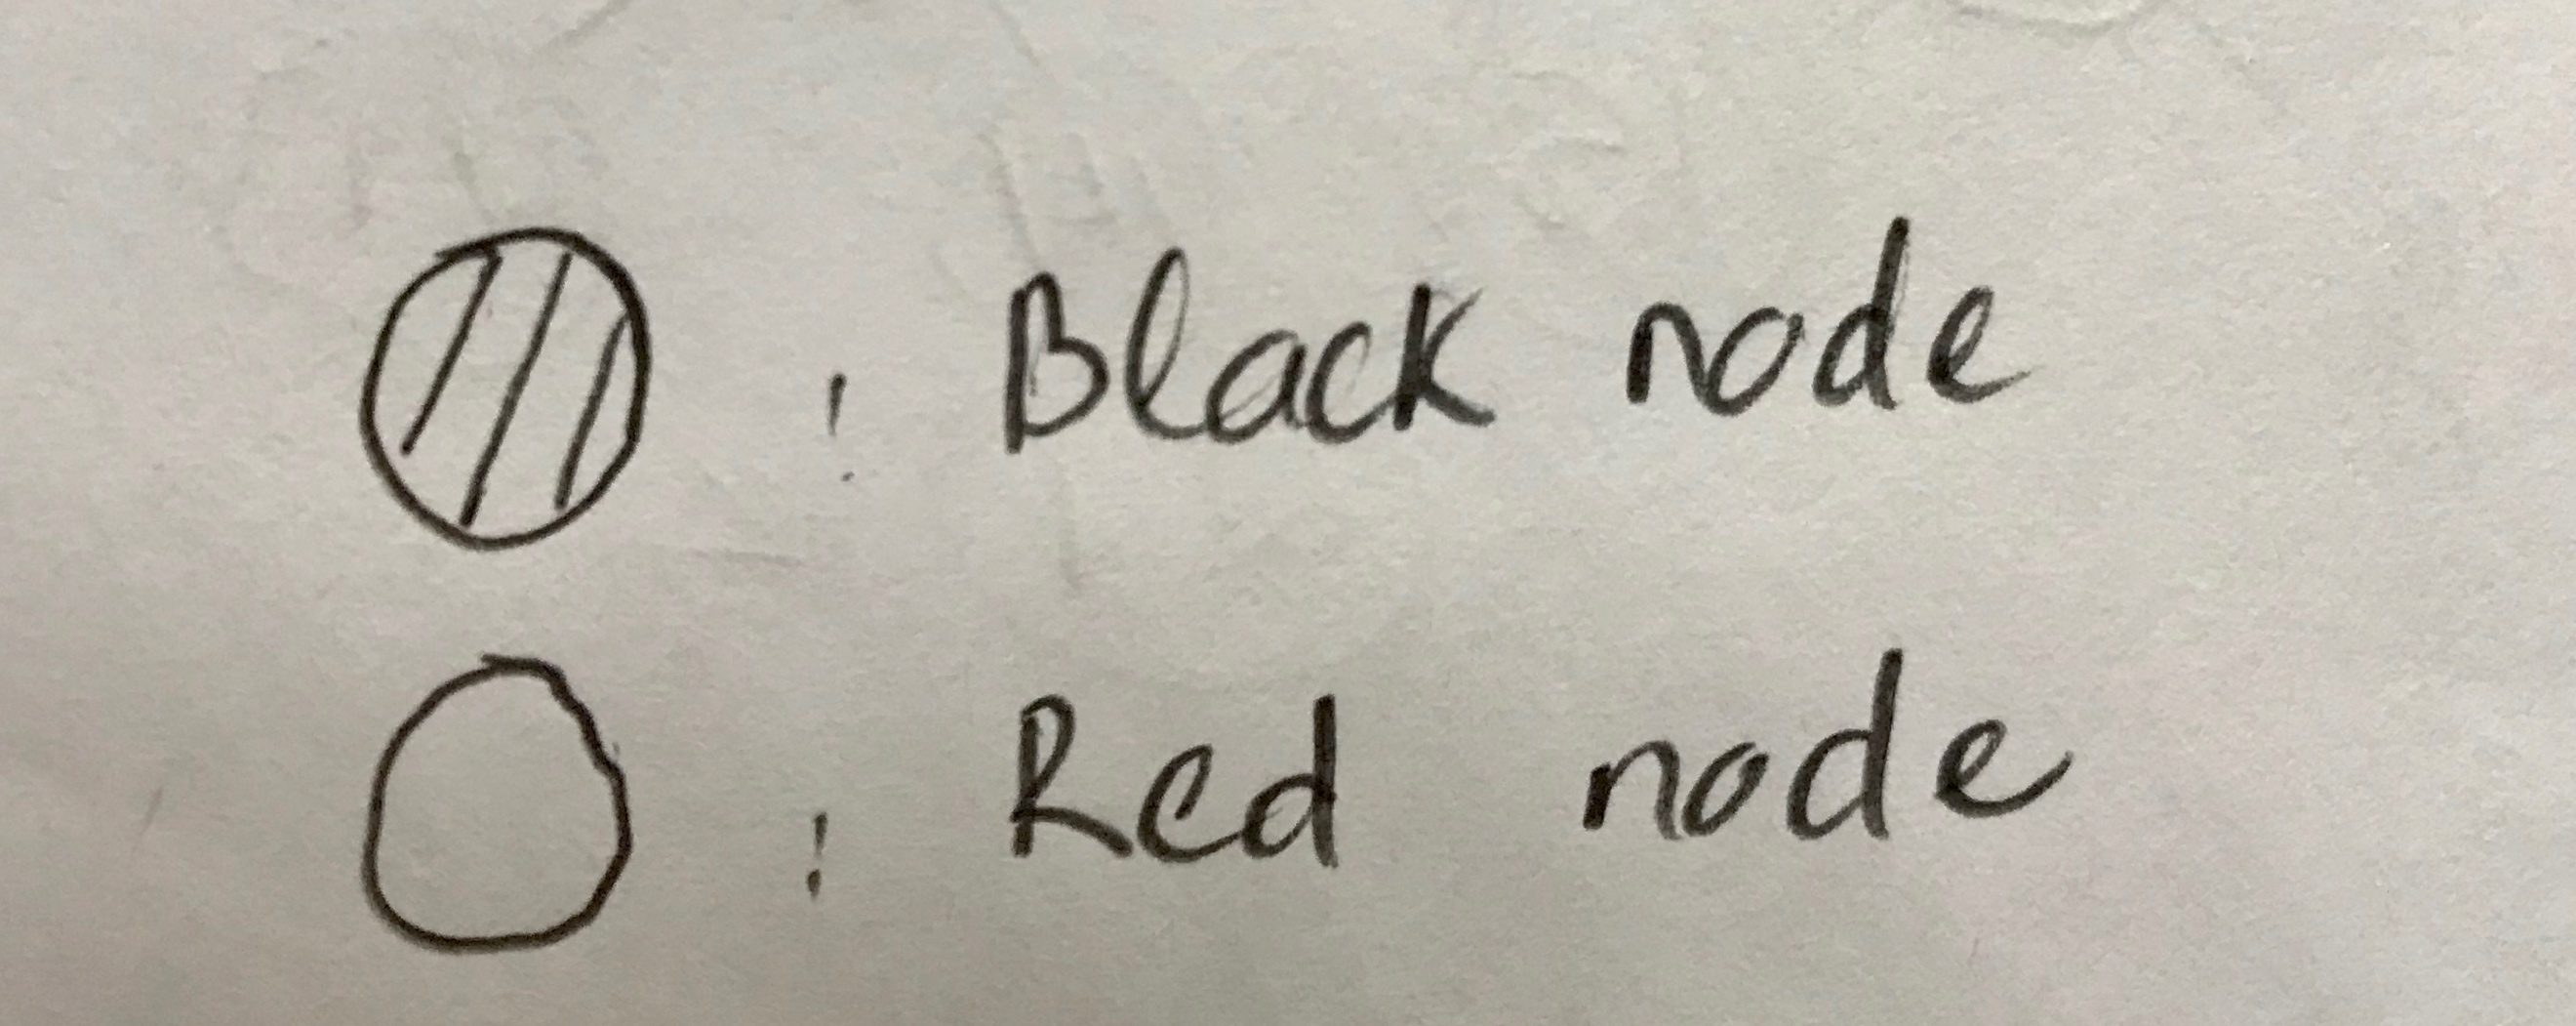 : Black node
: Red node